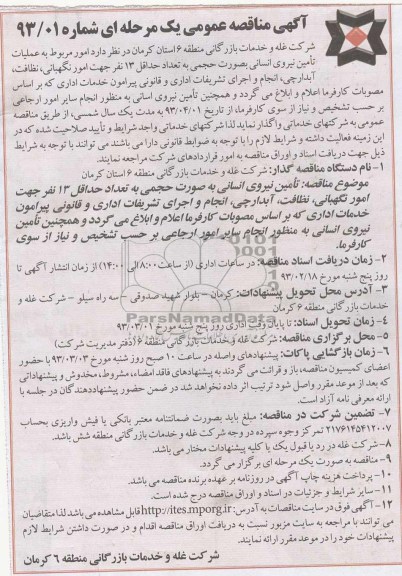 آگهی مناقصه عمومی یک مرحله ای شماره ۹۳/۰۱
شرکت غله و خدمات بازرگانی منطقه ۶ استان کرمان در نظر دارد امور مربوط به عملیات
تأمین نیروی انسانی بصورت حجمی به تعداد حداقل ۱۳ نفر جهت امور نگهبانی، نظافت،
آبدارچی، انجام و اجرای تشریفات اداری و قانونی پیرامون خدمات اداری که بر اساس
مصوبات کارفرما اعلام و ابلاغ می گردد و همچنین تأمین نیروی انسانی به منظور انجام سایر امور ارجاعی
بر حسب تشخیص و نیاز از سوی کارفرما، از تاریخ ۹۳/۰۴/۰۱ به مدت یک سال شمسی، از طریق مناقصه
عمومی به شرکتهای خدماتی واگذار نماید لذا شرکتهای خدماتی واجد شرایط و تأیید صلاحیت شده که در
این زمینه فعالیت داشته و شرایط لازم را با توجه به ضوابط قانونی دارا می باشند می توانند با توجه به شرایط
ذیل جهت دریافت اسناد و اوراق مناقصه به امور قراردادهای شرکت مراجعه نمایند.
۱- نام دستگاه مناقصه گذار: شرکت غله و خدمات بازرگانی منطقه ۶ استان کرمان
موضوع مناقصه: تأمین نیروی انسانی به صورت حجمی به تعداد حداقل ۱۳ نفر جهت
امور نگهبانی، نظافت، آبدارچی، انجام و اجرای تشریفات اداری و قانونی پیرامون
خدمات اداری که بر اساس مصوبات کارفرما اعلام و ابلاغ می گردد و همچنین تأمین
نیروی انسانی به منظور انجام سایر امور ارجاعی بر حسب تشخیص و نیاز از سوی
کارفرما.
۲- زمان دریافت اسناد مناقصه: در ساعات اداری (از ساعت ۸:۰۰ الی ۱۴:۰۰) از زمان انتشار آگهی تا
روز پنج شنبه مورخ ۹۳/۰۲/۱۸
۳- آدرس محل تحویل پیشنهادات: کرمان - بلوار شهید صدوقی - سه راه سیلو - شرکت غله و
خدمات بازرگانی منطقه ۶ کرمان
۴- زمان تحویل اسناد: تا پایان وقت اداری روز پنج شنبه مورخ ۹۳/۰۳/۰۱
۵- محل برگزاری مناقصه: شرکت غله و خدمات بازرگانی منطقه ۶ (دفتر مدیریت شرکت)
۶- زمان بازگشایی پاکات: پیشنهادهای واصله در ساعت ۱۰ صبح روز شنبه مورخ ۹۳/۰۳/۰۳ با حضور
اعضای کمیسیون مناقصه، باز و قرائت می گردند به پیشنهادهای فاقد امضاء، مشروط، مخدوش و پیشنهاداتی
که بعد از موعد مقرر واصل شود ترتیب اثر داده نخواهد شد در ضمن حضور پیشنهاددهندگان در جلسه با
ارائه معرفی نامه آزاد است.
۷- تضمین شرکت در مناقصه: مبلغ باید بصورت ضمانتنامه معتبر بانکی یا فیش واریزی بحساب
۲۱۷۶۱۴۵۴۱۲۰۰۷ تمرکز وجوه سپرده در وجه شرکت غله و خدمات بازرگانی منطقه شش باشد.
۸- شرکت غله در رد یا قبول یک یا کلیه پیشنهادات مختار می باشد.
۹- مناقصه به صورت یک مرحله ای برگزار می گردد.
۱۰- پرداخت هزینه چاپ آگهی در روزنامه بر عهده برنده مناقصه می باشد.
۱۱- سایر شرایط و جزئیات در اسناد و اوراق مناقصه درج شده است.
۱۲- آگهی فوق در سایت مناقصات به آدرس: http://ites.mporg.ir قابل مشاهده می باشد لذا متقاضیان
می توانند با مراجعه به سایت مزبور نسبت به دریافت اوراق مناقصه اقدام و در صورت داشتن شرایط لازم
پیشنهادات خود را در موعد مقرر ارائه نمایند.
شرکت غله و خدمات بازرگانی منطقه ۶ کرمان
ParsNamadData